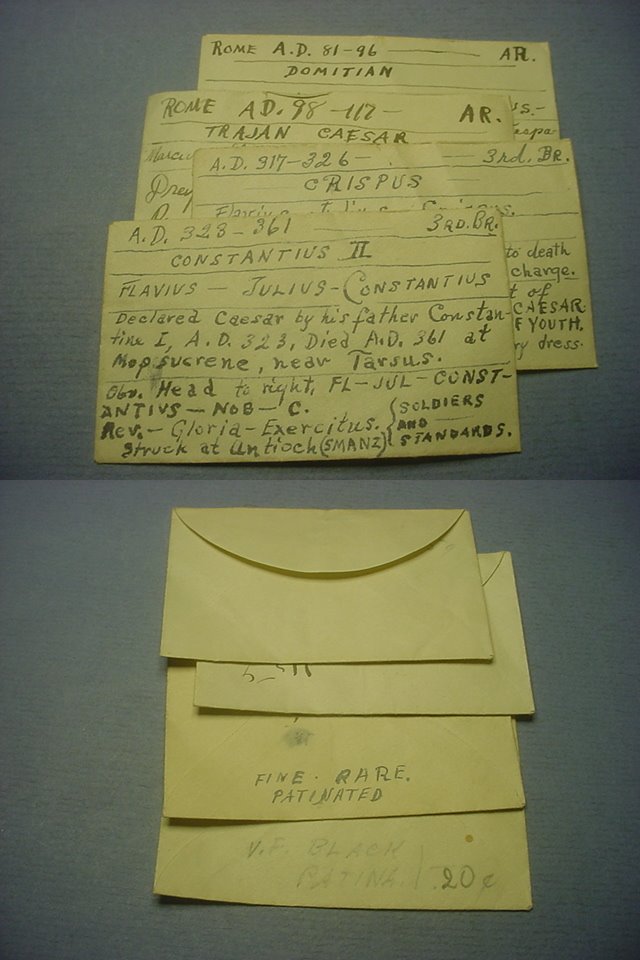 ROME A.D. 81-96 AR.
DOMITIAN
US.-
ROME AD. 98-117- AR.
TRAJAN CAESAR
A.D. 317-326- 3rd. BR.
CRISPUS
to death
charge.
t of
CAESAR
F YOUTH.
ry dress.
A.D. 323-361 3RD.BR.
CONSTANTIUS II
FLAVIUS - JULIUS-CONSTANTIUS
Declared Caesar by his father Constan-
tine I, A.D. 323, Died A.D. 361 at
Mopsucrene, near Tarsus.
Obv. Head to right, FL-JUL-CONST-
ANTIVS-NOB-C.
Rev.- Gloria-Exercitus. {SOLDIERS
AND
STANDARDS.
Struck at Antioch (SMANZ)
FINE. RARE.
PATINATED
V.F. BLACK
PATINA. 20¢